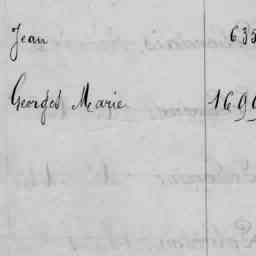 Jean 635
Georges Marie 169